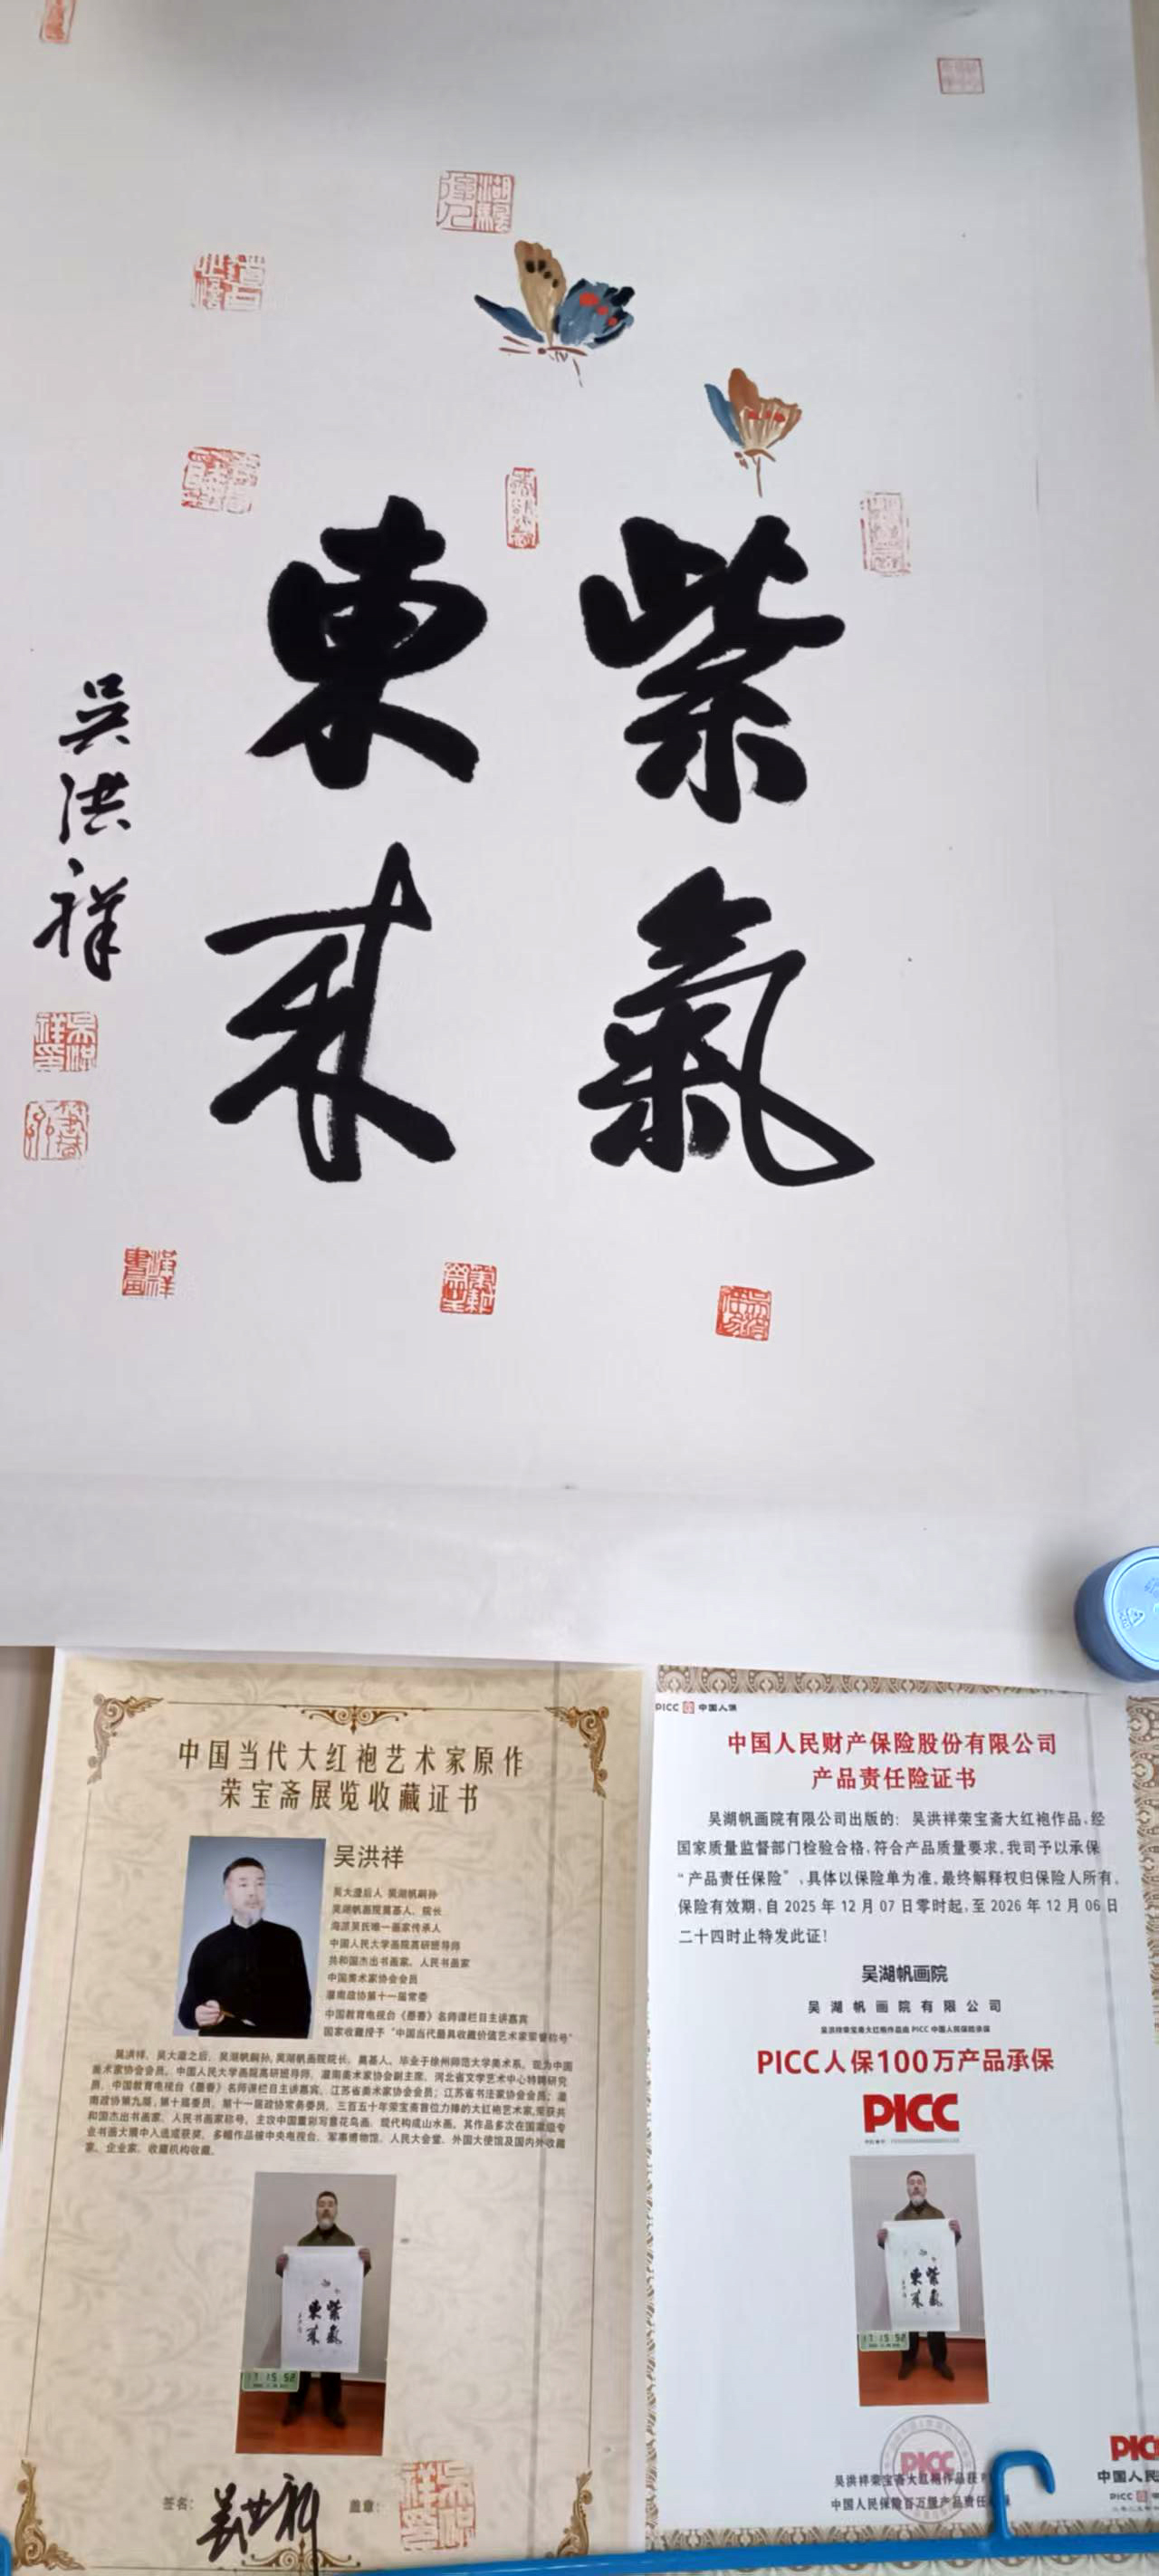 紫氣
東來
吳洪祥
中国当代大红袍艺术家原作
荣宝斋展览收藏证书
吴洪祥
吴大澂后人 吴湖帆嗣孙
吴湖帆画院奠基人、院长
海派吴氏唯一画家传承人
中国人民大学画院高研班导师
共和国杰出书画家、人民书画家
中国美术家协会会员
灌南政协第十一届常委
中国教育电视台《墨香》名师课栏目主讲嘉宾
国家收藏授予“中国当代最具收藏价值艺术家荣誉称号”
吴洪祥，吴大澂之后，吴湖帆嗣孙，吴湖帆画院院长、奠基人。毕业于徐州师范大学美术系，现为中国
美术家协会会员，中国人民大学画院高研班导师，灌南美术家协会副主席，河北省文学艺术中心特聘研究
员，中国教育电视台《墨香》名师课栏目主讲嘉宾，江苏省美术家协会会员；江苏省书法家协会会员；灌
南政协第九届，第十届委员，第十一届政协常务委员，三百五十年荣宝斋首位力捧的大红袍艺术家，荣获共
和国杰出书画家、人民书画家称号。主攻中国重彩写意花鸟画，现代构成山水画，其作品多次在国家级专
业书画大赛中入选或获奖，多幅作品被中央电视台、军事博物馆、人民大会堂、外国大使馆及国内外收藏
家、企业家、收藏机构收藏。
17 15 52
签名：
盖章：
PICC 中国人保
中国人民财产保险股份有限公司
产品责任险证书
吴湖帆画院有限公司出版的：吴洪祥荣宝斋大红袍作品，经
国家质量监督部门检验合格，符合产品质量要求，我司予以承保
“产品责任保险”，具体以保险单为准，最终解释权归保险人所有，
保险有效期，自 2025 年 12 月 07 日零时起，至 2026 年 12 月 06 日
二十四时止特发此证！
吴湖帆画院
吴湖帆画院有限公司
吴洪祥荣宝斋大红袍作品由 PICC 中国人民保险承保
PICC人保100万产品承保
PICC
17 15 52
PICC
吴洪祥荣宝斋大红袍作品获
中国人民保险百万级产品责任
PICC
中国人民
PICC